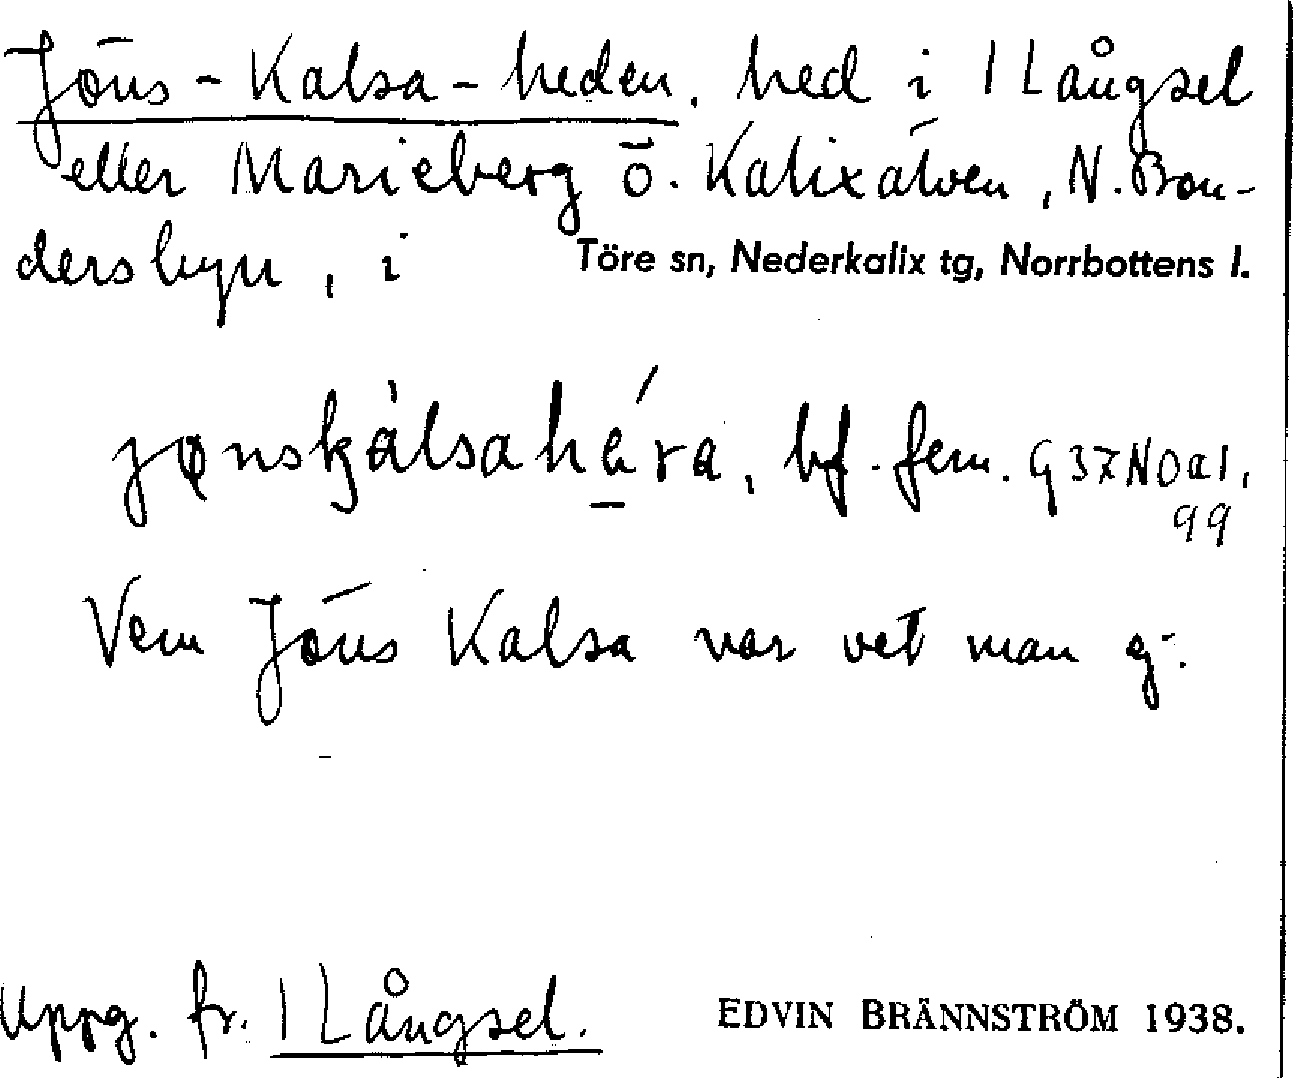 Jöns-Kalsa-heden, hed i 1 Långsel
eller Marieberg ö. Kalixälven, N. Bon-
dersbyn, i Töre sn, Nederkalix tg, Norrbottens l.
jønskàlsahéra, bf. fem. G37N0a1,
99
Vem Jöns Kalsa var vet man ej.
Uppg. fr. 1 Långsel. EDVIN BRÄNNSTRÖM 1938.